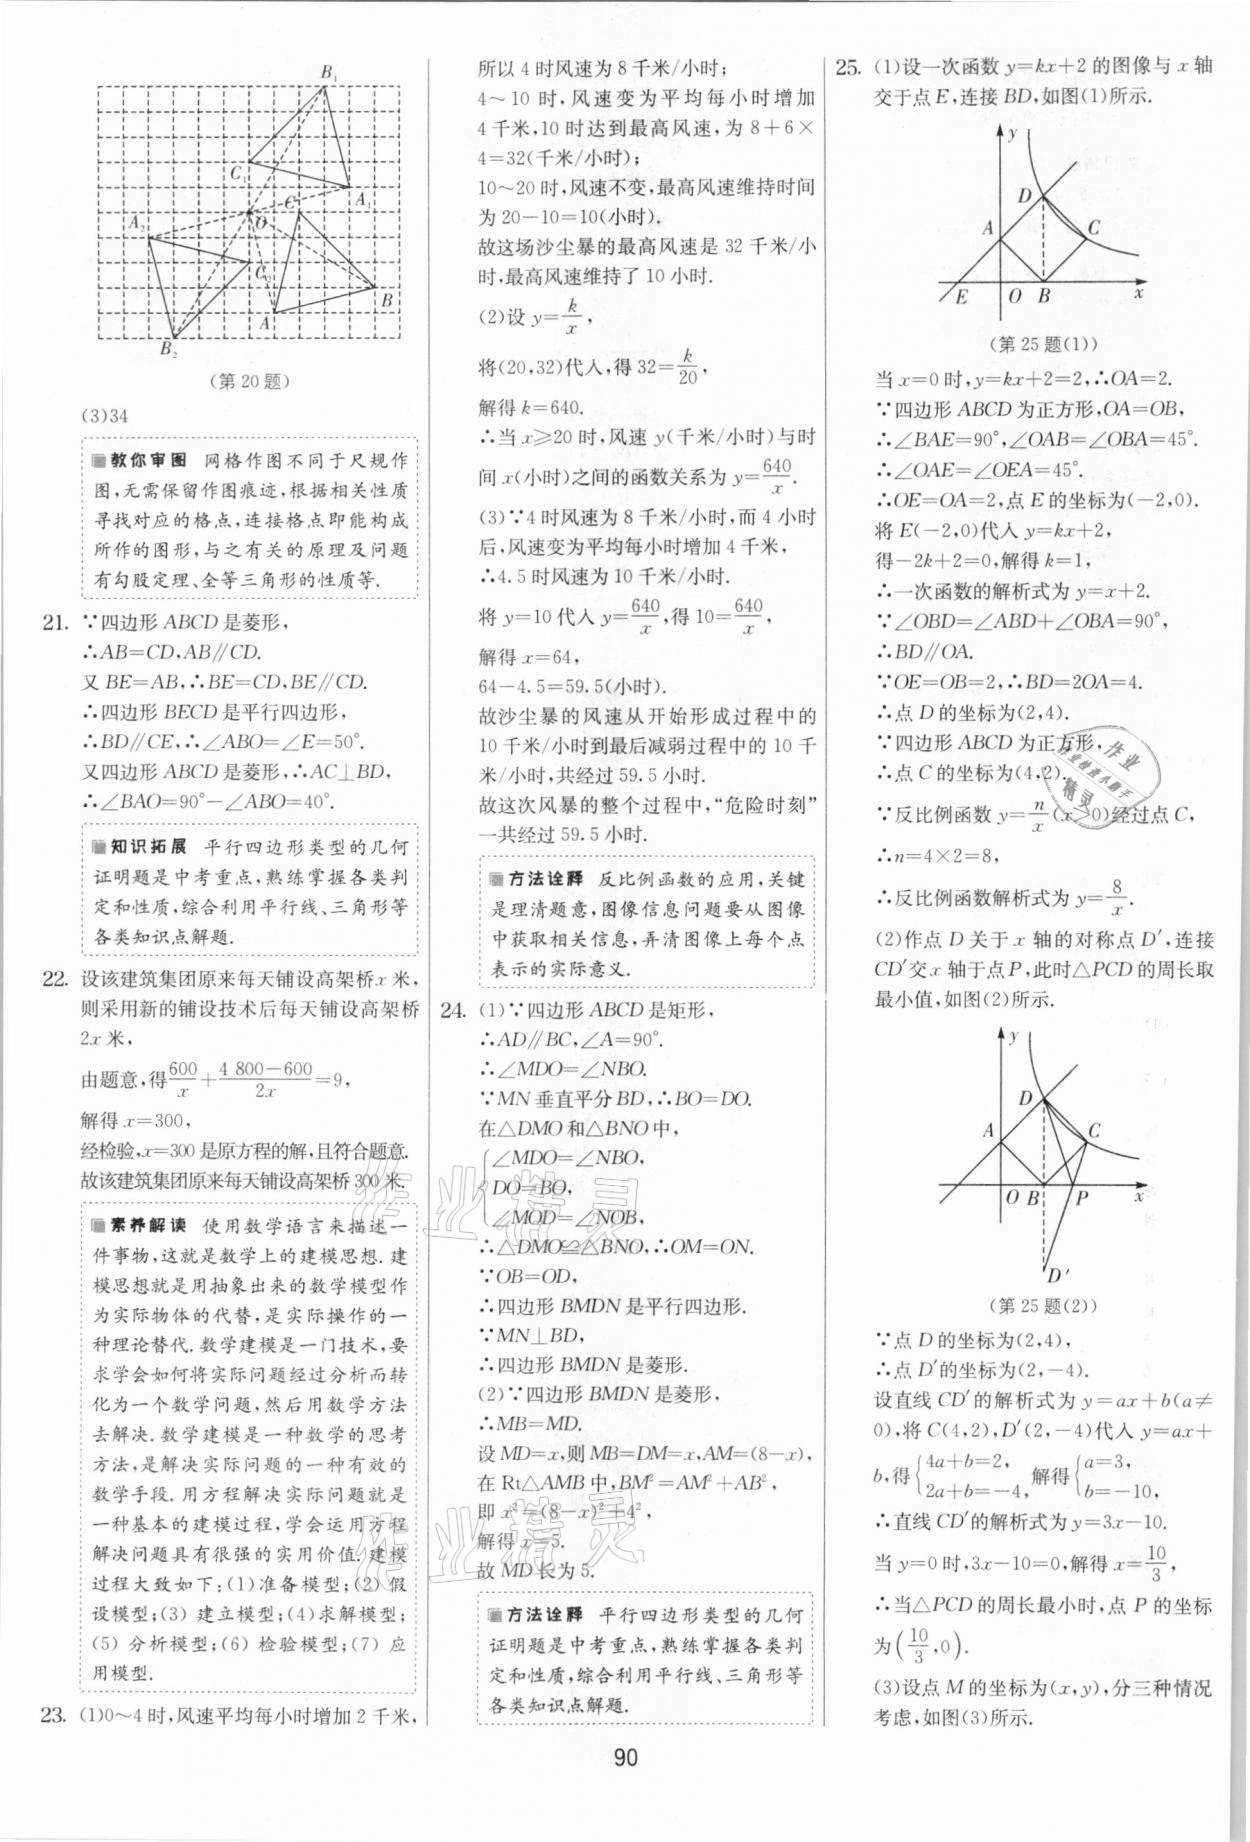 B₁
C₁
A₁
A₂
O
C
C₂
B
A
B₂
(第 20 题)
(3)34
教你审图 网格作图不同于尺规作
图,无需保留作图痕迹,根据相关性质
寻找对应的格点,连接格点即能构成
所作的图形,与之有关的原理及问题
有勾股定理、全等三角形的性质等.
21. ∵四边形 ABCD 是菱形,
∴AB=CD,AB∥CD.
又 BE=AB,∴BE=CD,BE∥CD.
∴四边形 BECD 是平行四边形,
∴BD∥CE,∴∠ABO=∠E=50°.
又四边形 ABCD 是菱形,∴AC⊥BD,
∴∠BAO=90°−∠ABO=40°.
知识拓展 平行四边形类型的几何
证明题是中考重点,熟练掌握各类判
定和性质,综合利用平行线、三角形等
各类知识点解题.
22. 设该建筑集团原来每天铺设高架桥 x 米,
则采用新的铺设技术后每天铺设高架桥
2x 米,
由题意,得600/x+(4 800−600)/2x=9,
解得 x=300,
经检验,x=300 是原方程的解,且符合题意.
故该建筑集团原来每天铺设高架桥 300 米.
素养解读 使用数学语言来描述一
件事物,这就是数学上的建模思想. 建
模思想就是用抽象出来的数学模型作
为实际物体的代替,是实际操作的一
种理论替代. 数学建模是一门技术,要
求学会如何将实际问题经过分析而转
化为一个数学问题,然后用数学方法
去解决. 数学建模是一种数学的思考
方法,是解决实际问题的一种有效的
数学手段. 用方程解决实际问题就是
一种基本的建模过程,学会运用方程
解决问题具有很强的实用价值. 建模
过程大致如下:(1)准备模型;(2) 假
设模型;(3) 建立模型;(4)求解模型;
(5) 分析模型;(6) 检验模型;(7) 应
用模型.
23. (1)0~4 时,风速平均每小时增加 2 千米,
所以 4 时风速为 8 千米/小时;
4~10 时,风速变为平均每小时增加
4 千米,10 时达到最高风速,为 8+6×
4=32(千米/小时);
10~20 时,风速不变,最高风速维持时间
为 20−10=10(小时).
故这场沙尘暴的最高风速是 32 千米/小
时,最高风速维持了 10 小时.
(2)设 y=k/x,
将(20,32)代入,得 32=k/20,
解得 k=640.
∴当 x⩾20 时,风速 y(千米/小时)与时
间 x(小时)之间的函数关系为 y=640/x.
(3)∵4 时风速为 8 千米/小时,而 4 小时
后,风速变为平均每小时增加 4 千米,
∴4.5 时风速为 10 千米/小时.
将 y=10 代入 y=640/x,得 10=640/x,
解得 x=64,
64−4.5=59.5(小时).
故沙尘暴的风速从开始形成过程中的
10 千米/小时到最后减弱过程中的 10 千
米/小时,共经过 59.5 小时.
故这次风暴的整个过程中,“危险时刻”
一共经过 59.5 小时.
方法诠释 反比例函数的应用,关键
是理清题意,图像信息问题要从图像
中获取相关信息,弄清图像上每个点
表示的实际意义.
24. (1)∵四边形 ABCD 是矩形,
∴AD∥BC,∠A=90°.
∴∠MDO=∠NBO.
∵MN 垂直平分 BD,∴BO=DO.
在△DMO 和△BNO 中,
{∠MDO=∠NBO,
DO=BO,
∠MOD=∠NOB,
∴△DMO≌△BNO,∴OM=ON.
∵OB=OD,
∴四边形 BMDN 是平行四边形.
∵MN⊥BD,
∴四边形 BMDN 是菱形.
(2)∵四边形 BMDN 是菱形,
∴MB=MD.
设 MD=x,则 MB=DM=x,AM=(8−x),
在 Rt△AMB 中,BM²=AM²+AB²,
即 x²=(8−x)²+4²,
解得 x=5.
故 MD 长为 5.
方法诠释 平行四边形类型的几何
证明题是中考重点,熟练掌握各类判
定和性质,综合利用平行线、三角形等
各类知识点解题.
25. (1)设一次函数 y=kx+2 的图像与 x 轴
交于点 E,连接 BD,如图(1)所示.
y
D
A
C
E
O
B
x
(第 25 题(1))
当 x=0 时,y=kx+2=2,∴OA=2.
∵四边形 ABCD 为正方形,OA=OB,
∴∠BAE=90°,∠OAB=∠OBA=45°.
∴∠OAE=∠OEA=45°.
∴OE=OA=2,点 E 的坐标为(−2,0).
将 E(−2,0)代入 y=kx+2,
得−2k+2=0,解得 k=1,
∴一次函数的解析式为 y=x+2.
∵∠OBD=∠ABD+∠OBA=90°,
∴BD∥OA.
∵OE=OB=2,∴BD=2OA=4.
∴点 D 的坐标为(2,4).
∵四边形 ABCD 为正方形,
∴点 C 的坐标为(4,2).
∵反比例函数 y=n/x(x>0)经过点 C,
∴n=4×2=8,
∴反比例函数解析式为 y=8/x.
(2)作点 D 关于 x 轴的对称点 D′,连接
CD′交 x 轴于点 P,此时△PCD 的周长取
最小值,如图(2)所示.
y
D
A
C
O
B
P
x
D′
(第 25 题(2))
∵点 D 的坐标为(2,4),
∴点 D′的坐标为(2,−4).
设直线 CD′的解析式为 y=ax+b(a≠
0),将 C(4,2),D′(2,−4)代入 y=ax+
b,得{4a+b=2, 2a+b=−4, 解得{a=3, b=−10,
∴直线 CD′的解析式为 y=3x−10.
当 y=0 时,3x−10=0,解得 x=10/3,
∴当△PCD 的周长最小时,点 P 的坐标
为(10/3,0).
(3)设点 M 的坐标为(x,y),分三种情况
考虑,如图(3)所示.
作业精灵
作业精灵
作业
精灵
90